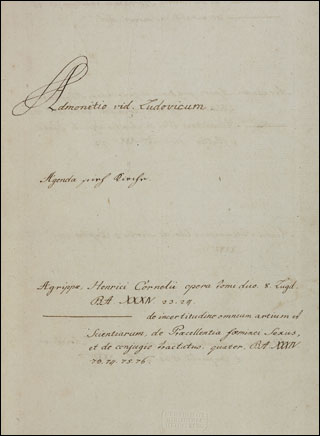 Admonitio vid. Ludovicum
Agenda
Agrippæ Henrici Cornelii opera tomi duo. 8. Lugd.
BA XXXIV 23.24.
de incertitudine omnium artium et
Scientiarum, de Præcellentia fœminei Sexus,
et de conjugio tractatus, quater. BA XXXIV
73.74.75.76.